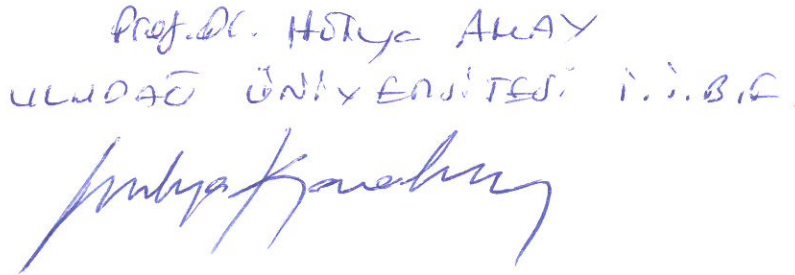 Prof. Dr. Hülya AKAY
ULUDAĞ ÜNİVERSİTESİ İ.İ.B.F.